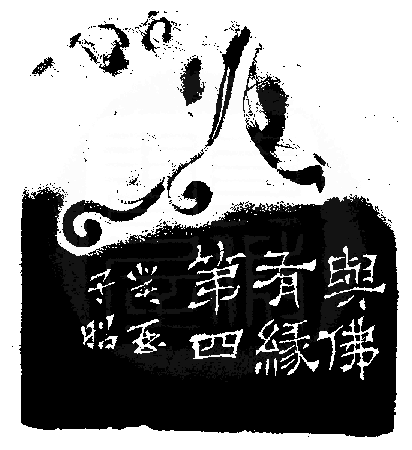 與佛
有緣
第四
癸酉
子昭